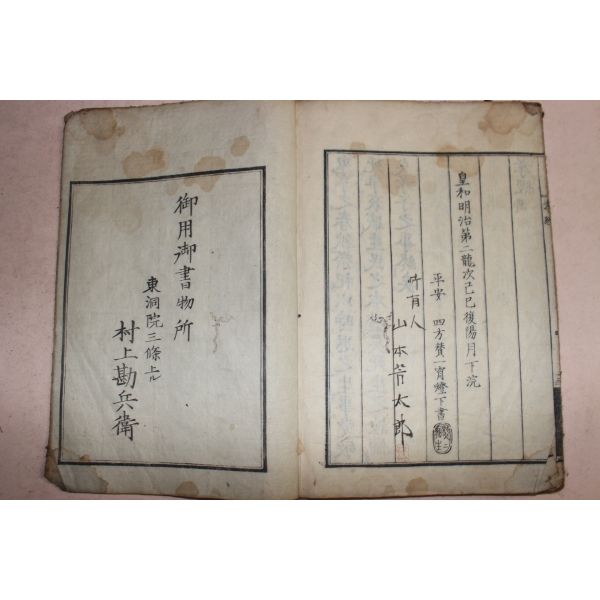 皇和明治第二龍次己巳復陽月下浣
平安 四方賛一宵燈下書
所有人
山本
太郎
御用御書物所
東洞院三條上ル
村上勘兵衛